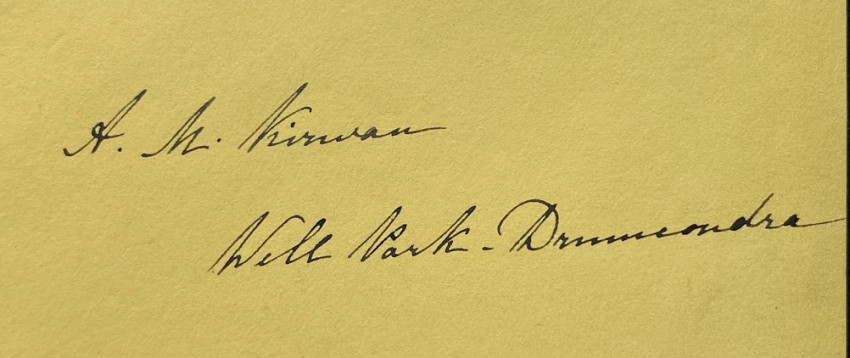 A. M. Kirwan
Well Park - Drumcondra